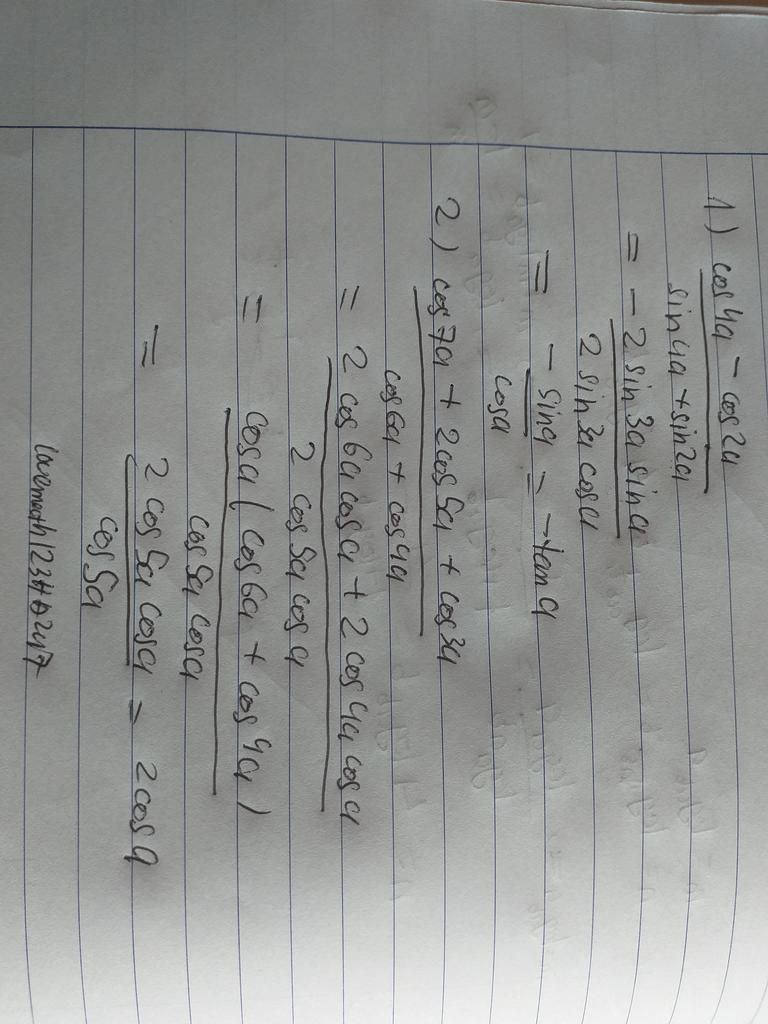 1) cos4a - cos2a
sin4a + sin2a
= -2 sin3a sina
2 sin3a cosa
= - sina = -tana
cosa
2) cos7a + 2cos5a + cos3a
cos6a + cos4a
= 2 cos6a cosa + 2 cos4a cosa
2 cos5a cosa
= cosa (cos6a + cos4a)
cos5a cosa
= 2 cos5a cosa = 2cosa
cos5a